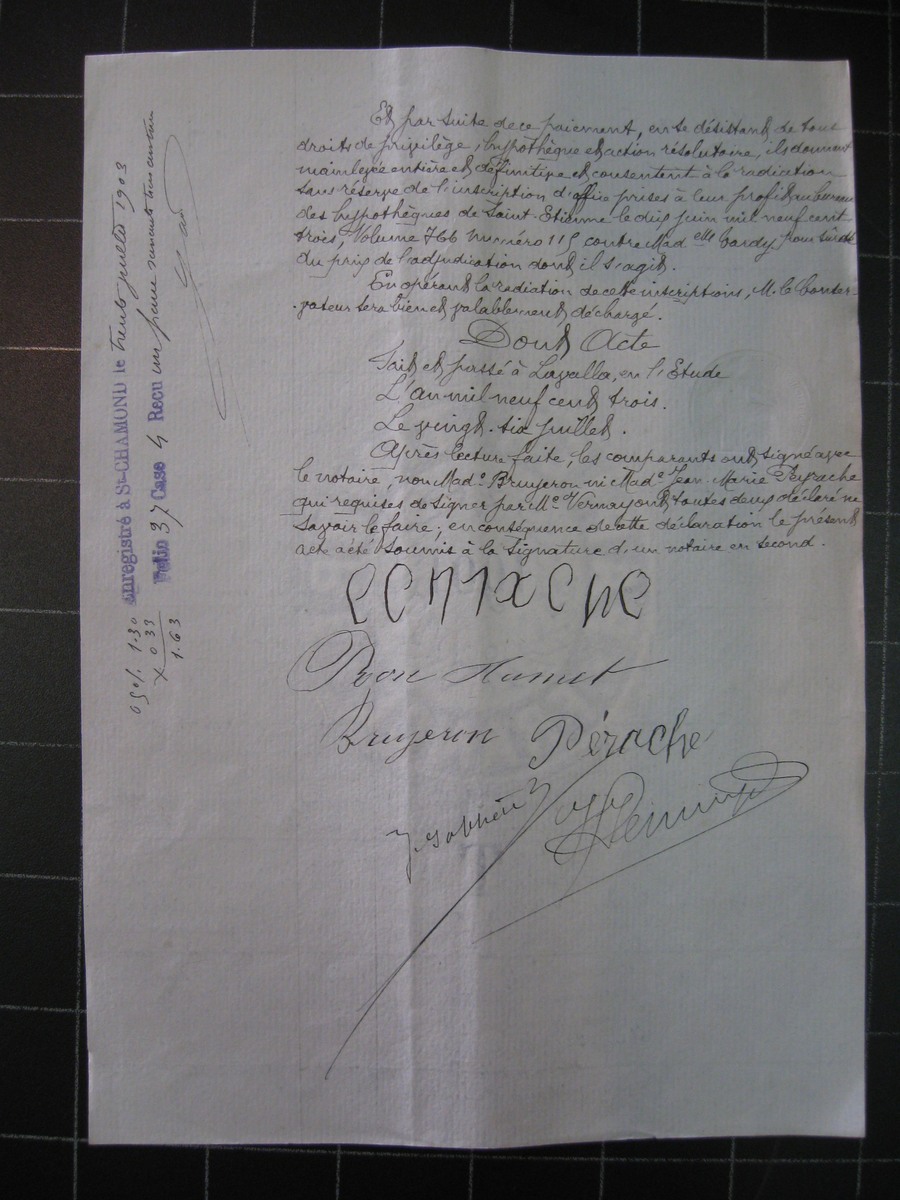 Et par suite de ce paiement, en se désistant de tous
droits de privilège, hypothèque et action résolutoire, ils donnent
mainlevée entière et définitive et consentent à la radiation
sans réserve de l'inscription d'office prises à leur profit au bureau
des hypothèques de Saint-Etienne le dix juin mil neuf cent
trois, Volume 766 numéro 115 contre Mad elle Bardy pour sûreté
du prix de l'adjudication dont il s'agit.
En opérant la radiation de cette inscriptions, M. le Conser-
vateur sera bien et valablement déchargé.
Dont Acte
Fait et passé à Lavalla, en l'Etude
L'an mil neuf cent trois.
Le vingt-six juillet.
Après lecture faite, les comparants ont signé avec
le notaire, non Mad e Bruyeron ni Mad e Jean-Marie Peyrache
qui requises de signer par Me Vernay ont toutes deux déclaré ne
savoir le faire; en conséquence de cette déclaration le présent
acte a été soumis à la signature d'un notaire en second.
Bruyeron Pérache
Enregistré à St-CHAMOND le trente juillet 1903
Folio 37 Case 4 Reçu un franc soixante trois centimes
1.30
0 33
1.63